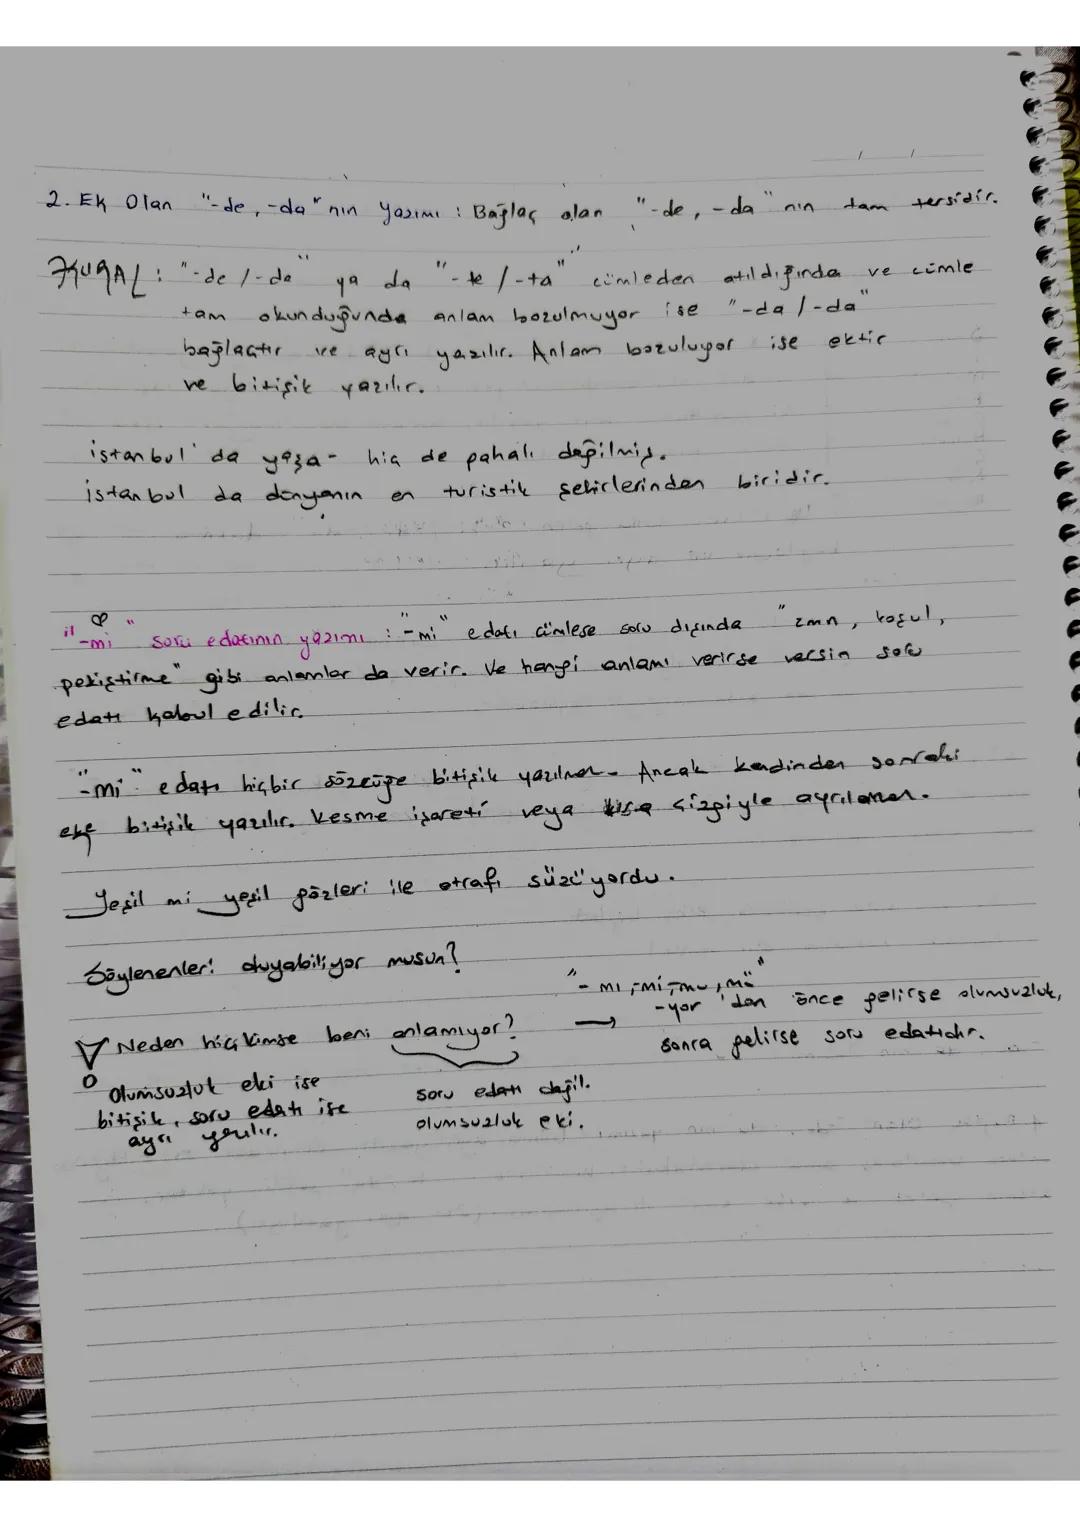 2. Ek Olan "-de, -da" nın yazımı : Bağlaç olan "-de, -da" nın tam tersidir.
KURAL : "-de /-da" ya da "-te /-ta" cümleden atıldığında ve cümle
tam okunduğunda anlam bozulmuyor ise "-da /-da"
bağlaçtır ve ayrı yazılır. Anlam bozuluyor ise ektir
ve bitişik yazılır.
istanbul'da yaşa- hiç de pahalı değilmiş.
istanbul da dünyanın en turistik şehirlerinden biridir.
"-mi" soru edatının yazımı : "-mi" edatı cümlese soru dışında "zmn, koşul,
pekiştirme" gibi anlamlar da verir. Ve hangi anlamı verirse versin soru
edatı kabul edilir.
"-mi" edatı hiçbir sözcüğe bitişik yazılmaz. Ancak kendinden sonraki
eke bitişik yazılır. Kesme işareti veya kısa çizgiyle ayrılamaz.
Yeşil mi yeşil gözleri ile etrafı süzüyordu.
Söylenenleri duyabiliyor musun?
"- mı, -mi, -mu, mü"
Neden hiç kimse beni anlamıyor? → -yor 'dan önce gelirse olumsuzluk,
sonra gelirse soru edatıdır.
Olumsuzluk eki ise
bitişik, soru edatı ise
ayrı yazılır.
soru edatı değil.
olumsuzluk eki.